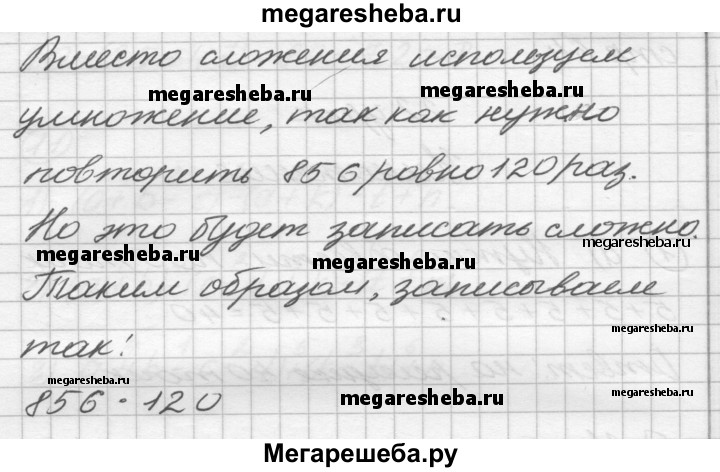 megaresheba.ru
Вместо сложения используем
megaresheba.ru
megaresheba.ru
умножение, так как нужно
повторить 856 ровно 120 раз.
megaresheba.ru
Но это будет записать сложно.
megaresheba.ru
megaresheba.ru
megaresheba.ru
Таким образом, записываем
megaresheba.ru
так:
megaresheba.ru
megaresheba.ru
megaresheba.ru
856 · 120
Мегарешеба.ру